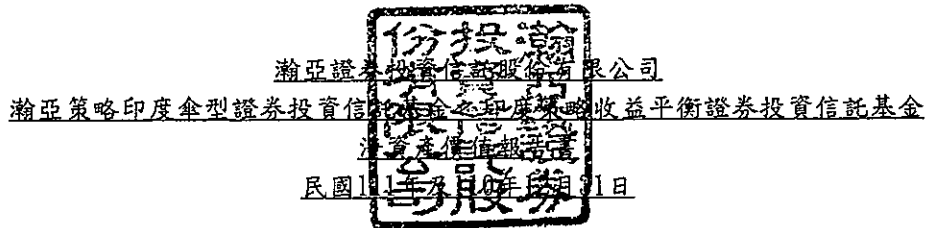 瀚亞證券投資信託股份有限公司
瀚亞策略印度傘型證券投資信託基金之印度策略收益平衡證券投資信託基金
淨資產價值報告書
民國111年及110年12月31日